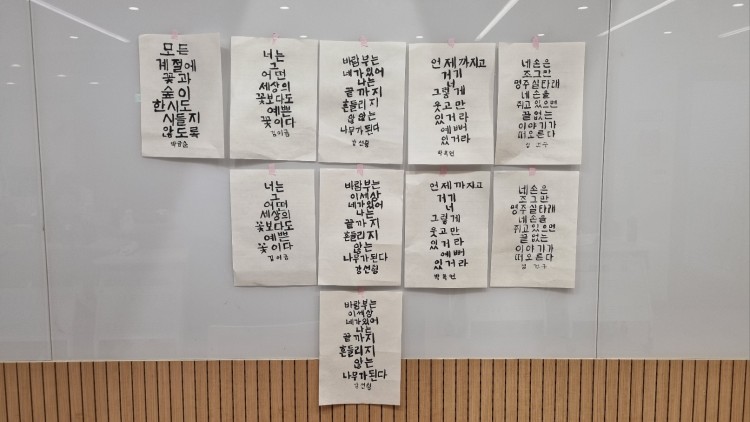 모든
계절에
꽃과
숲이
한시도
시들지
않도록
너는
그
어떤
세상의
꽃보다도
예쁜
꽃이다
김이금
바람부는
네가있어
나는
끝까지
흔들리지
않는
나무가된다
강선림
언제까지고
거기
너
그렇게
웃고만
있거라
예뻐
있거라
박목연
네손은
조그만
명주실타래
네손을
쥐고있으면
끝없는
이야기가
떠오른다
너는
그
어떤
세상의
꽃보다도
예쁜
꽃이다
김이금
바람부는
이세상
네가있어
나는
끝까지
흔들리지
않는
나무가된다
강선림
언제까지고
거기
너
그렇게
웃고만
있거라
예뻐
있거라
네손은
조그만
명주실타래
네손을
쥐고있으면
끝없는
이야기가
떠오른다
바람부는
이세상
네가있어
나는
끝까지
흔들리지
않는
나무가된다
강선림